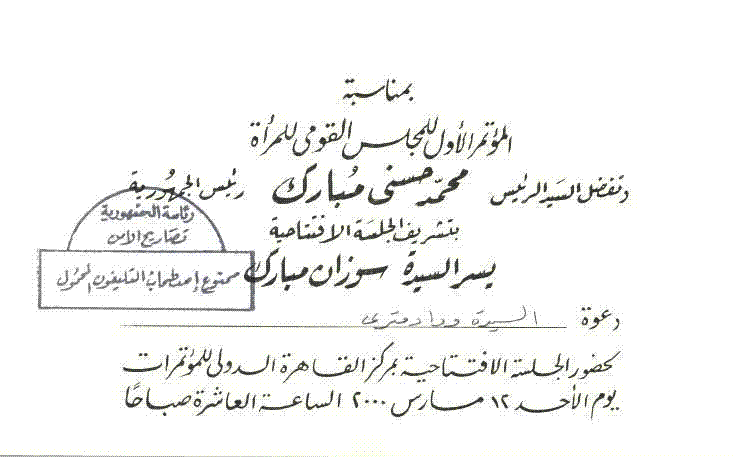 بمناسبة
المؤتمر الأول للمجلس القومى للمرأة
وتفضل السيد الرئيس محمد حسنى مُبارك رئيس الجمهُورية
بتشريف الجلسة الافتتاحية
يسر السيدة سوزان مبارك
دعوة السيدة وداد مترى
لحضور الجلسة الافتتاحية بمركز القاهرة الدولى للمؤتمرات
يوم الأحد ١٢ مارس ٢٠٠٠ الساعة العاشرة صباحًا
رئاسة الجمهورية
تصاريح الأمن
ممنوع إصطحاب التليفون المحمول